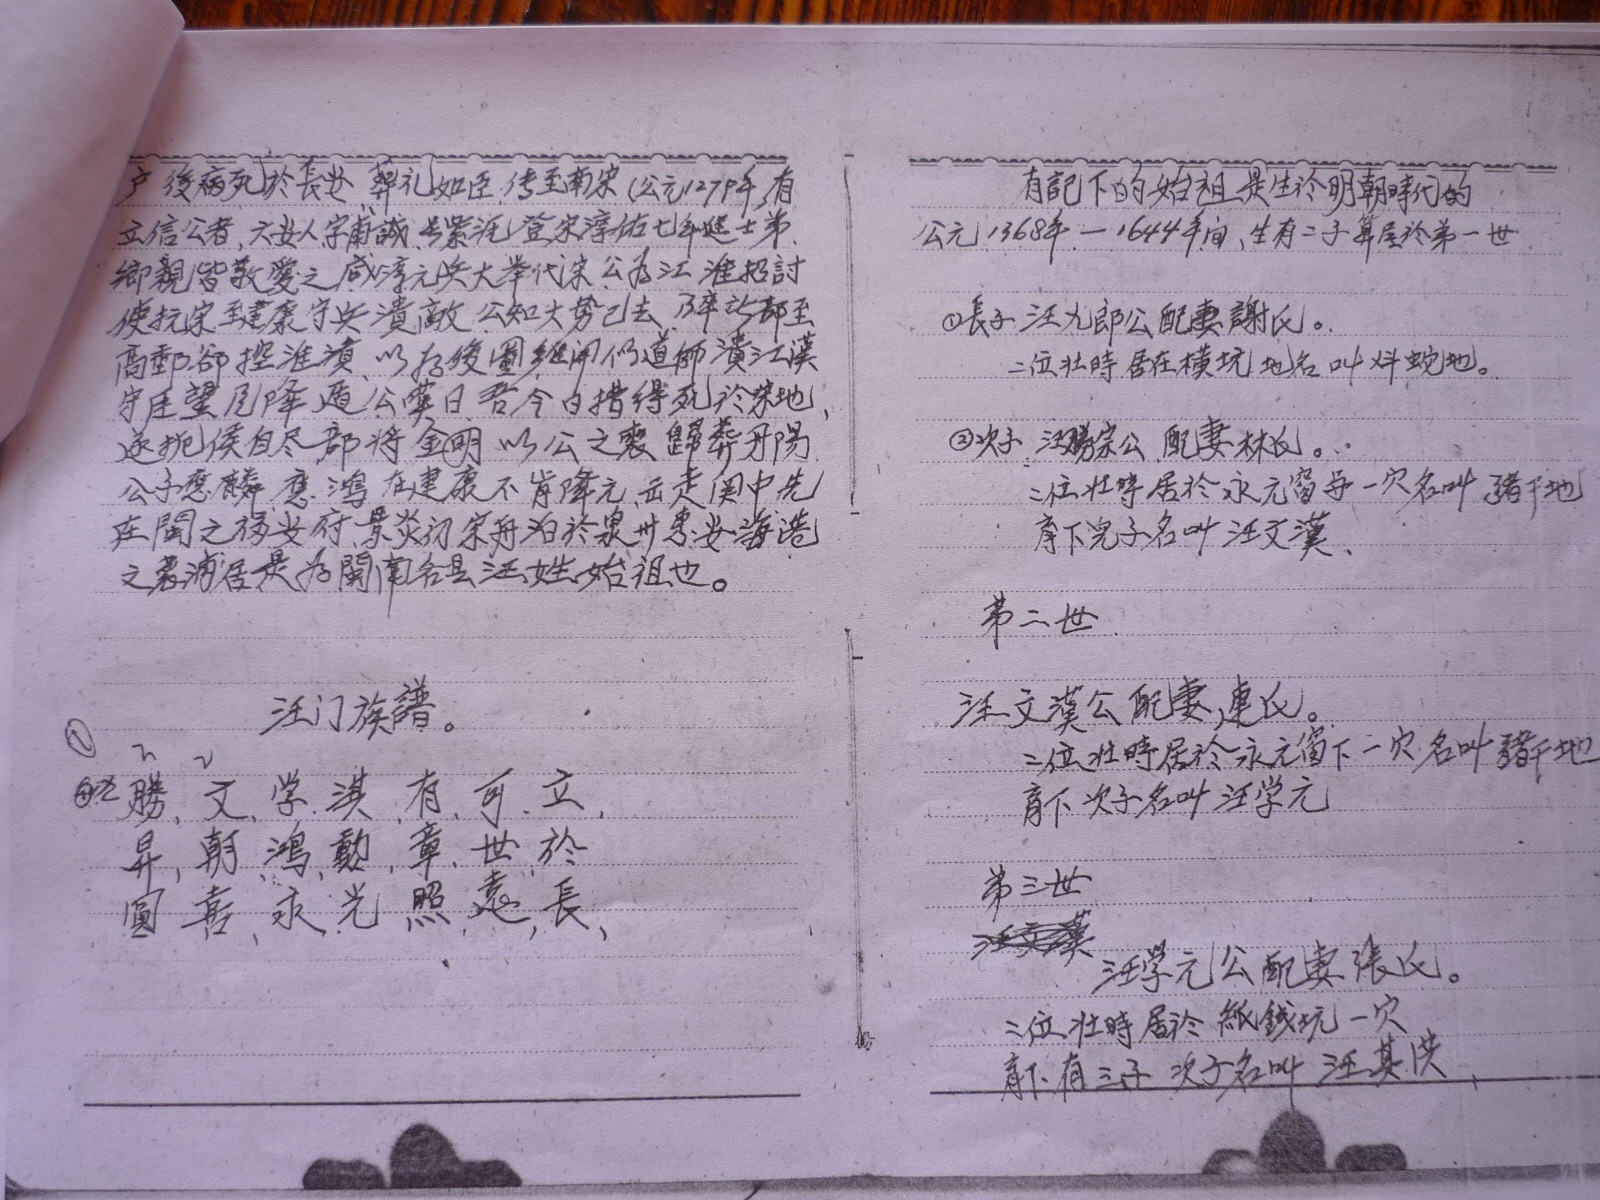 户後病死於長安 葬礼如臣.传至南宋(公元1279年,有
立信公者,六安人字甫誠.号紫沅,登宋淳佑七年進士第.
鄉親皆敬愛之.咸淳元兵大举伐宋.公為江淮招討
使抗宋至建康守兵潰敵.公知大势已去.率部至
高郵 控淮 以 後圖 師潰江漢
守 望風降遁公嘆曰吾今日 得死於宋地,
遂扼喉自尽.部将金明以公之喪歸葬丹陽.
公子應麟.應鴻在建康不肯降元 走闽中先
在閩之福安府.景炎初宋舟泊於泉卅惠安海港
之 浦居是為閩南各县汪姓始祖也。
汪门族譜。
①
勝,文,学.淇.有,可,立,
昇,朝,鴻,勳,章,世,於
圓,喜,永,光,照,遠,長,
有記下的始祖是生於明朝時代的
公元1368年—1644年间,生有二子算居於第一世
①長子.汪九郎公配妻謝氏。
二位壯時居在横坑 地名叫 蛇地。
②次子.汪勝宗公.配妻林氏。
二位壯時居於永元 一穴名叫 地
育下児子名叫汪文漢、
第二世
汪文漢公配妻連氏。
二位壯時居於永元 下一穴名叫 地
育下次子名叫汪学元
第三世
汪文漢
汪学元公配妻張氏。
二位壯時居於紙錢坑一穴
育下有三子 次子名叫汪其洪